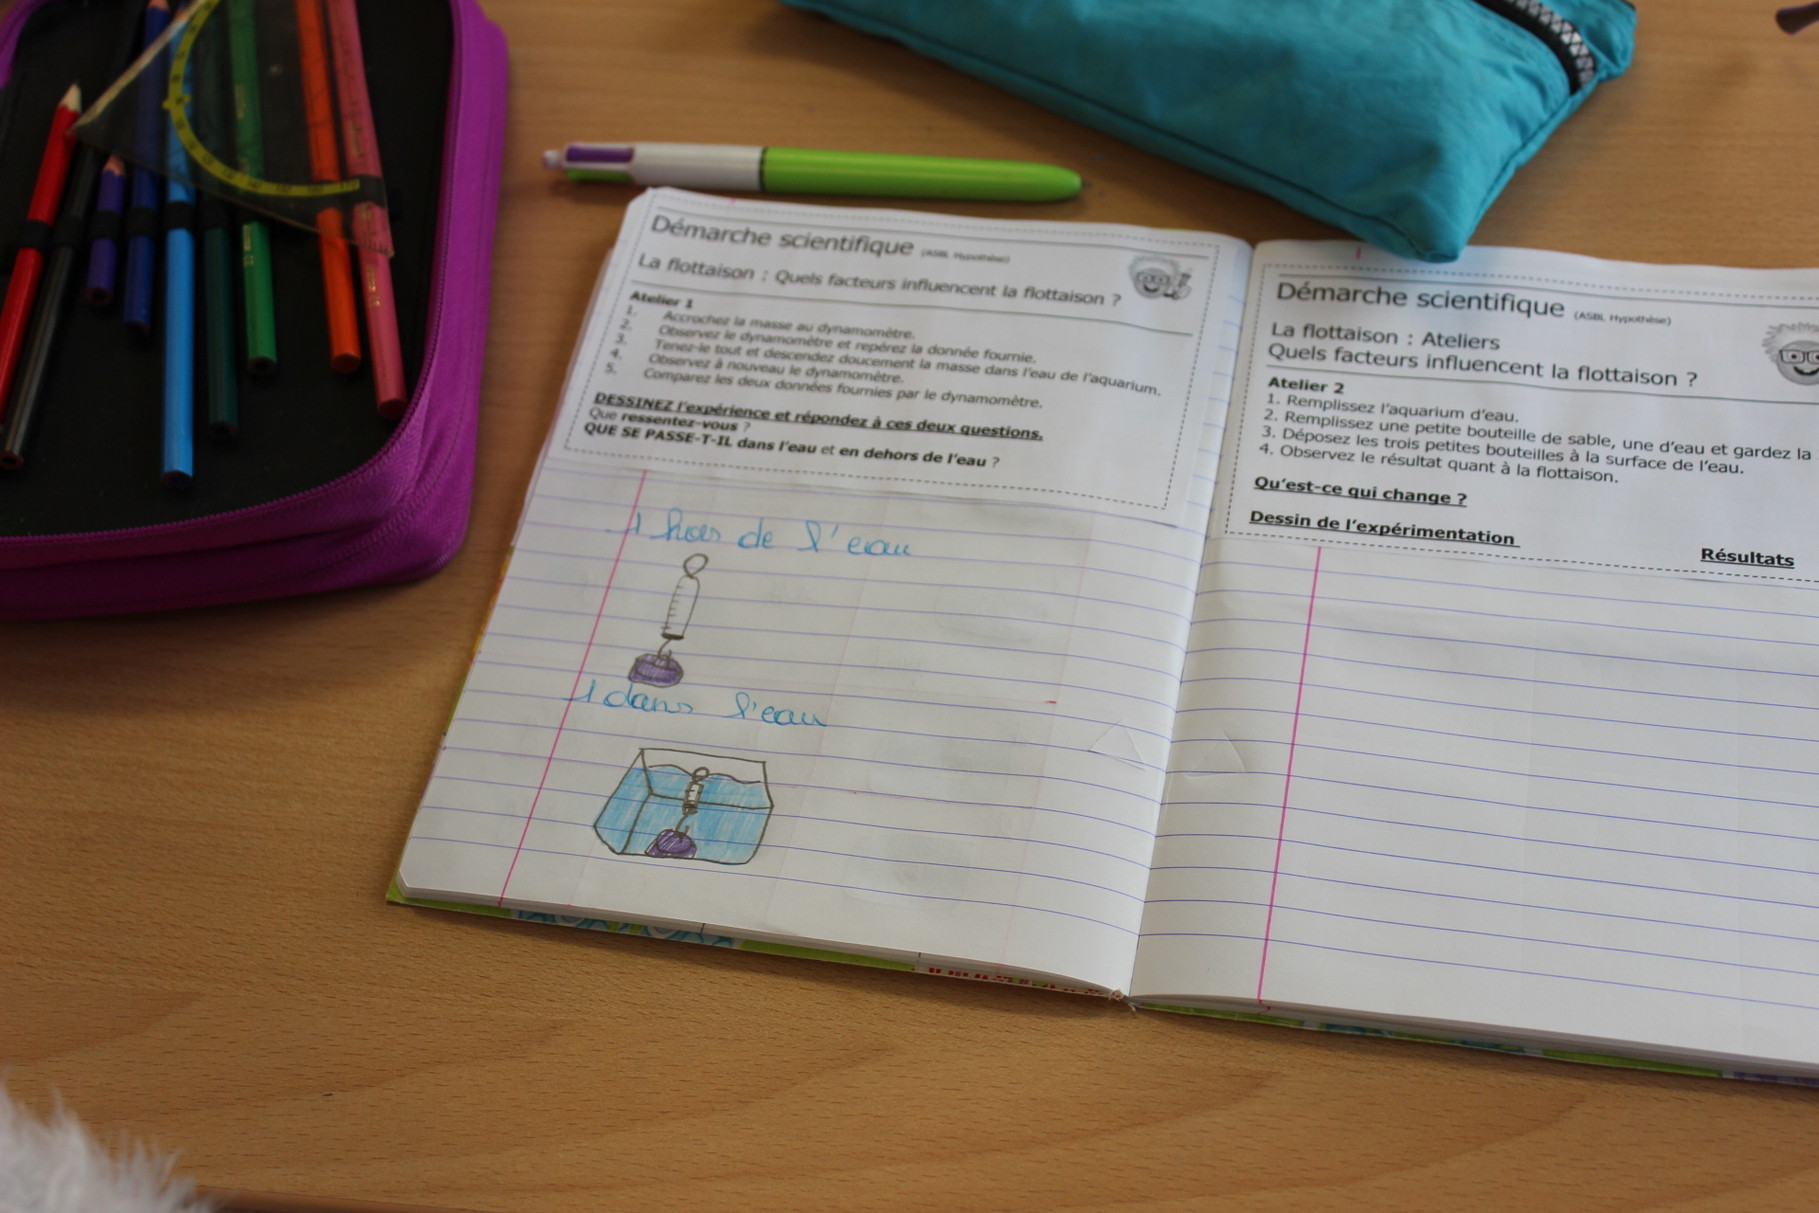 Démarche scientifique (ASBL Hypothèse)
La flottaison : Quels facteurs influencent la flottaison ?
Atelier 1
1. Accrochez la masse au dynamomètre.
2. Observez le dynamomètre et repérez la donnée fournie.
3. Tenez-le tout et descendez doucement la masse dans l'eau de l'aquarium.
4. Observez à nouveau le dynamomètre.
5. Comparez les deux données fournies par le dynamomètre.
DESSINEZ l'expérience et répondez à ces deux questions.
Que ressentez-vous ?
QUE SE PASSE-T-IL dans l'eau et en dehors de l'eau ?
1 hors de l'eau
1 dans l'eau
Démarche scientifique (ASBL Hypothèse)
La flottaison : Ateliers
Quels facteurs influencent la flottaison ?
Atelier 2
1. Remplissez l'aquarium d'eau.
2. Remplissez une petite bouteille de sable, une d'eau et gardez la
3. Déposez les trois petites bouteilles à la surface de l'eau.
4. Observez le résultat quant à la flottaison.
Qu'est-ce qui change ?
Dessin de l'expérimentation
Résultats